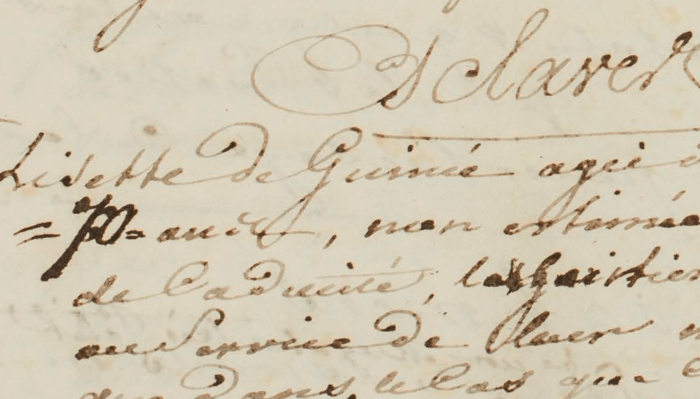 Esclaves
Lisette de Guinée agée
=70= ans, non estimée
de Caducité, les parties
au Service de
que dans le Cas que